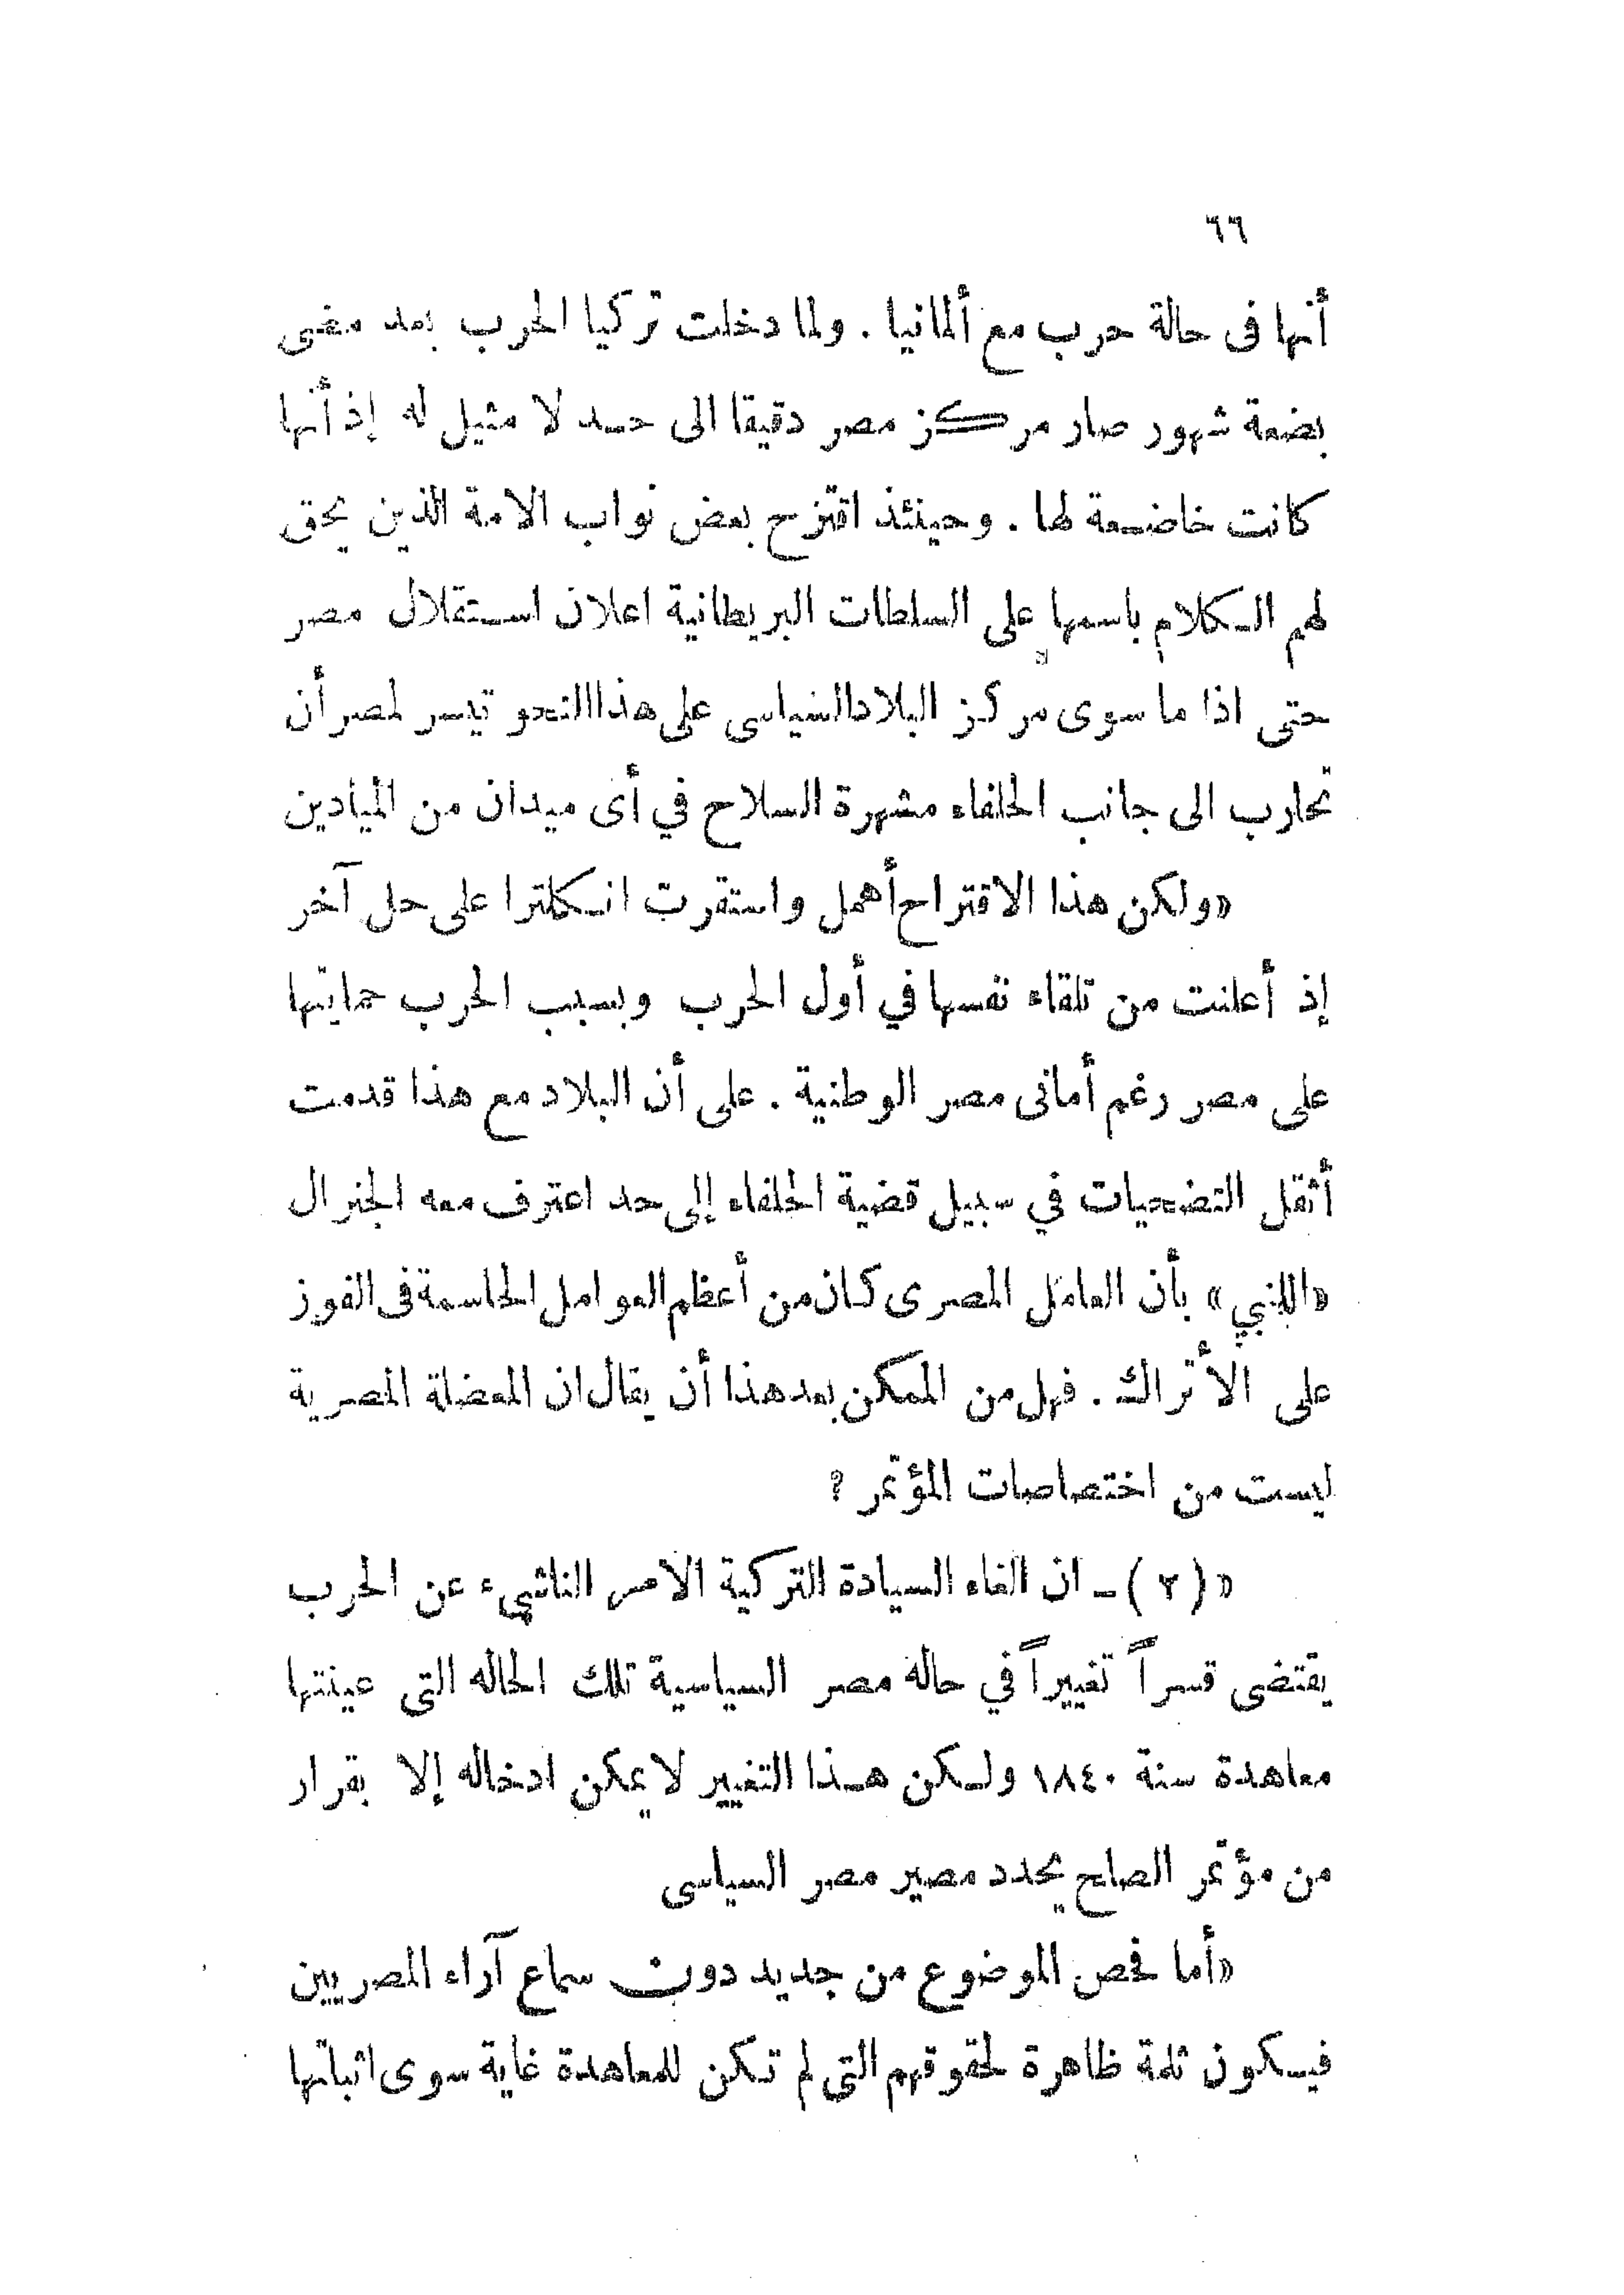 ٦٦
أنها فى حالة حرب مع ألمانيا . ولما دخلت تركيا الحرب بعد مضى
بضعة شهور صار مركز مصر دقيقا الى حد لا مثيل له إذ أنها
كانت خاضعة لها . وحينئذ اقترح بعض نواب الامة الذين يحق
لهم الكلام باسمها على السلطات البريطانية اعلان استقلال مصر
حتى اذا ما سوى مركز البلاد السياسى على هذا النحو تيسر لمصر أن
تحارب الى جانب الحلفاء مشهرة السلاح في أى ميدان من الميادين
«ولكن هذا الاقتراح أهمل واستقرت انكلترا على حل آخر
إذ أعلنت من تلقاء نفسها في أول الحرب وبسبب الحرب حمايتها
على مصر رغم أمانى مصر الوطنية . على أن البلاد مع هذا قدمت
أثقل التضحيات في سبيل قضية الحلفاء إلى حد اعترف معه الجنرال
«اللنبي» بأن العامل المصرى كان من أعظم العوامل الحاسمة فى الفوز
على الأتراك . فهل من الممكن بعد هذا أن يقال ان المعضلة المصرية
ليست من اختصاصات المؤتمر ؟
«(٢) ـ ان الغاء السيادة التركية الامر الناشىء عن الحرب
يقتضى قسراً تغييراً في حاله مصر السياسية تلك الحاله التى عينتها
معاهدة سنة ١٨٤٠ ولكن هذا التغيير لا يمكن ادخاله إلا بقرار
من مؤتمر الصلح يحدد مصير مصر السياسى
«أما فحص الموضوع من جديد دون سماع آراء المصريين
فيكون ثلمة ظاهرة لحقوقهم التى لم تكن للمعاهدة غاية سوى اثباتها